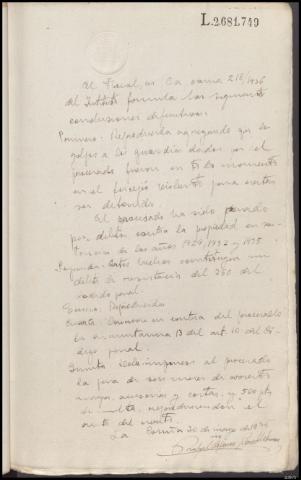 L.2681.749
El Fiscal, en la causa 218/1936
del Instituto formula las siguientes
conclusiones definitivas:
Primera: Reproducida agregando que los
golpes a los guardias dados por el
procesado fueron en todo momento
en el forcejeo violento para evitar
ser detenido.
El procesado ha sido penado
por delitos contra la propiedad en sen-
tencias de los años 1929, 1932 y 1935.
Segunda: Estos hechos constituyen un
delito de resistencia del 260 del
código penal.
Tercera: Reproducida
Cuarta: Concurre en contra del procesado
la circunstancia 13 del art. 10 del Có-
digo penal.
Quinta: Debe imponerse al procesado
la pena de seis meses de arresto
mayor, accesorias y costas, y 500 pts
de multa, reproduciendo el
resto del escrito.
La Coruña 20 de mayo de 1936